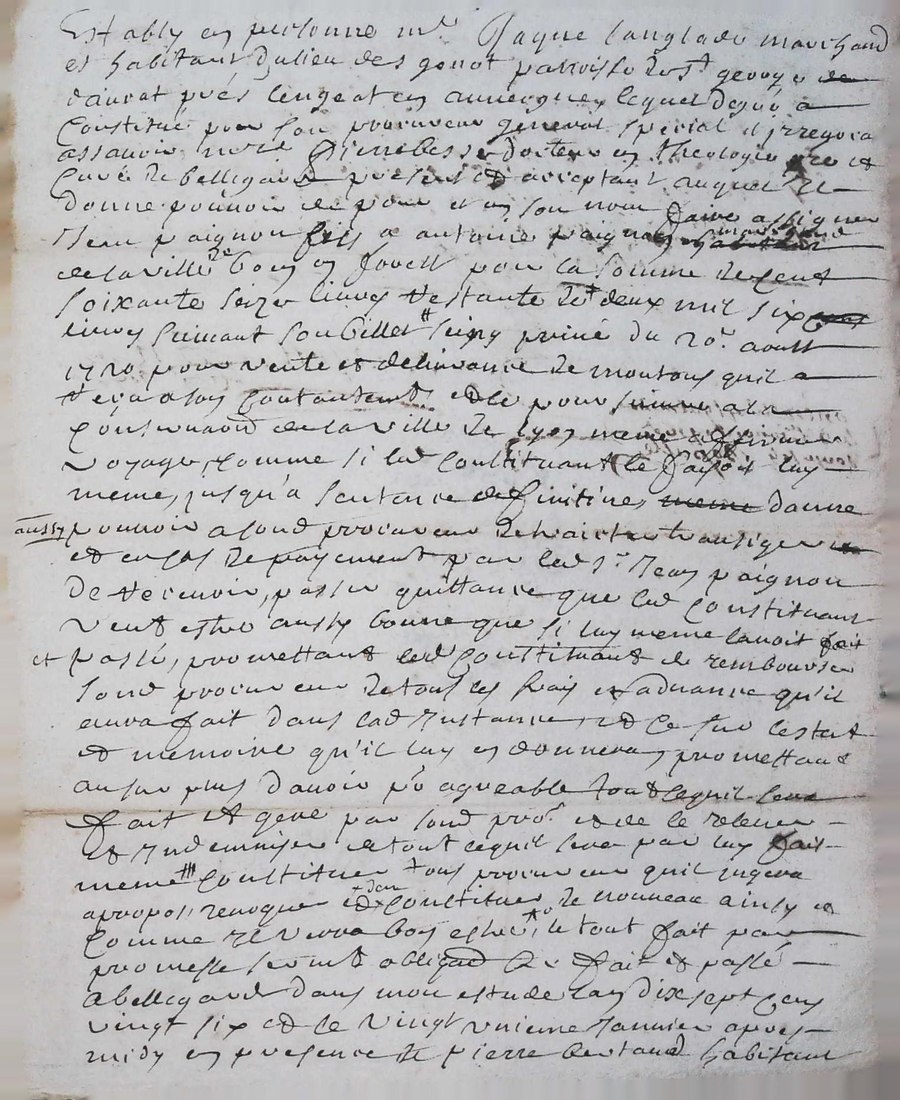 Establv en personne mr. Jaque langlade marchand
et habitant du lieu des genot parroisse de st george
dauvat prés lengeat en auvergne, lequel de gré a
Constitué pour son procureur general special et irrevoca
assavoir mre Pierre besse docteur en theologie pre et
Curé de bellegarde present et acceptant auquel il
donne pouvoir de pour et en son nom faire assigner
Jean paignon fils a antoine paignon marchand
de la ville de bourg en forest pour la somme de cent
soixante seize livres restante de deux mil six
livres suivant son billet seing privé du 20e aoust
1720 pour vente et delivrance de moutons qu'il a
receu a son contantemt et de pour suivre a la
Conservaon de la ville de lyon meme affirmer
voyage, comme si led constituant le faisoit luy
meme, jusqu'a sentence definitive, meme donne
aussy pouvoir a sond procureur de traicter transiger
et en cas de payement par led sr. Jean paignon
de recevoir, passer quittance que led Constituant
veut estre aussy bonne que si luy meme lavoit fait
et passé, promettant led Constituant de rembourser
sond procureur de tous les frais et advance qu'il
aura fait dans lad Instance, et ce sur lestat
et memoire qu'il luy en donnera, promettant
au surplus d'avoir pr agreable tout ce quil sera
fait et geré par sond pror. et de le relever
et Indemniser de tout ce quil sera par luy fait
meme constituer tous procureur quil jugera
apropos, revoquer et constituer de nouveau ainsy
Comme il verra bon estre, le tout fait par
promesse sermt obligaon &c. fait et passé
a bellegarde dans mon estude lan dix sept cens
vingt six et le vingt unieme Janvier apres
midy en presence de pierre bertaud habitant